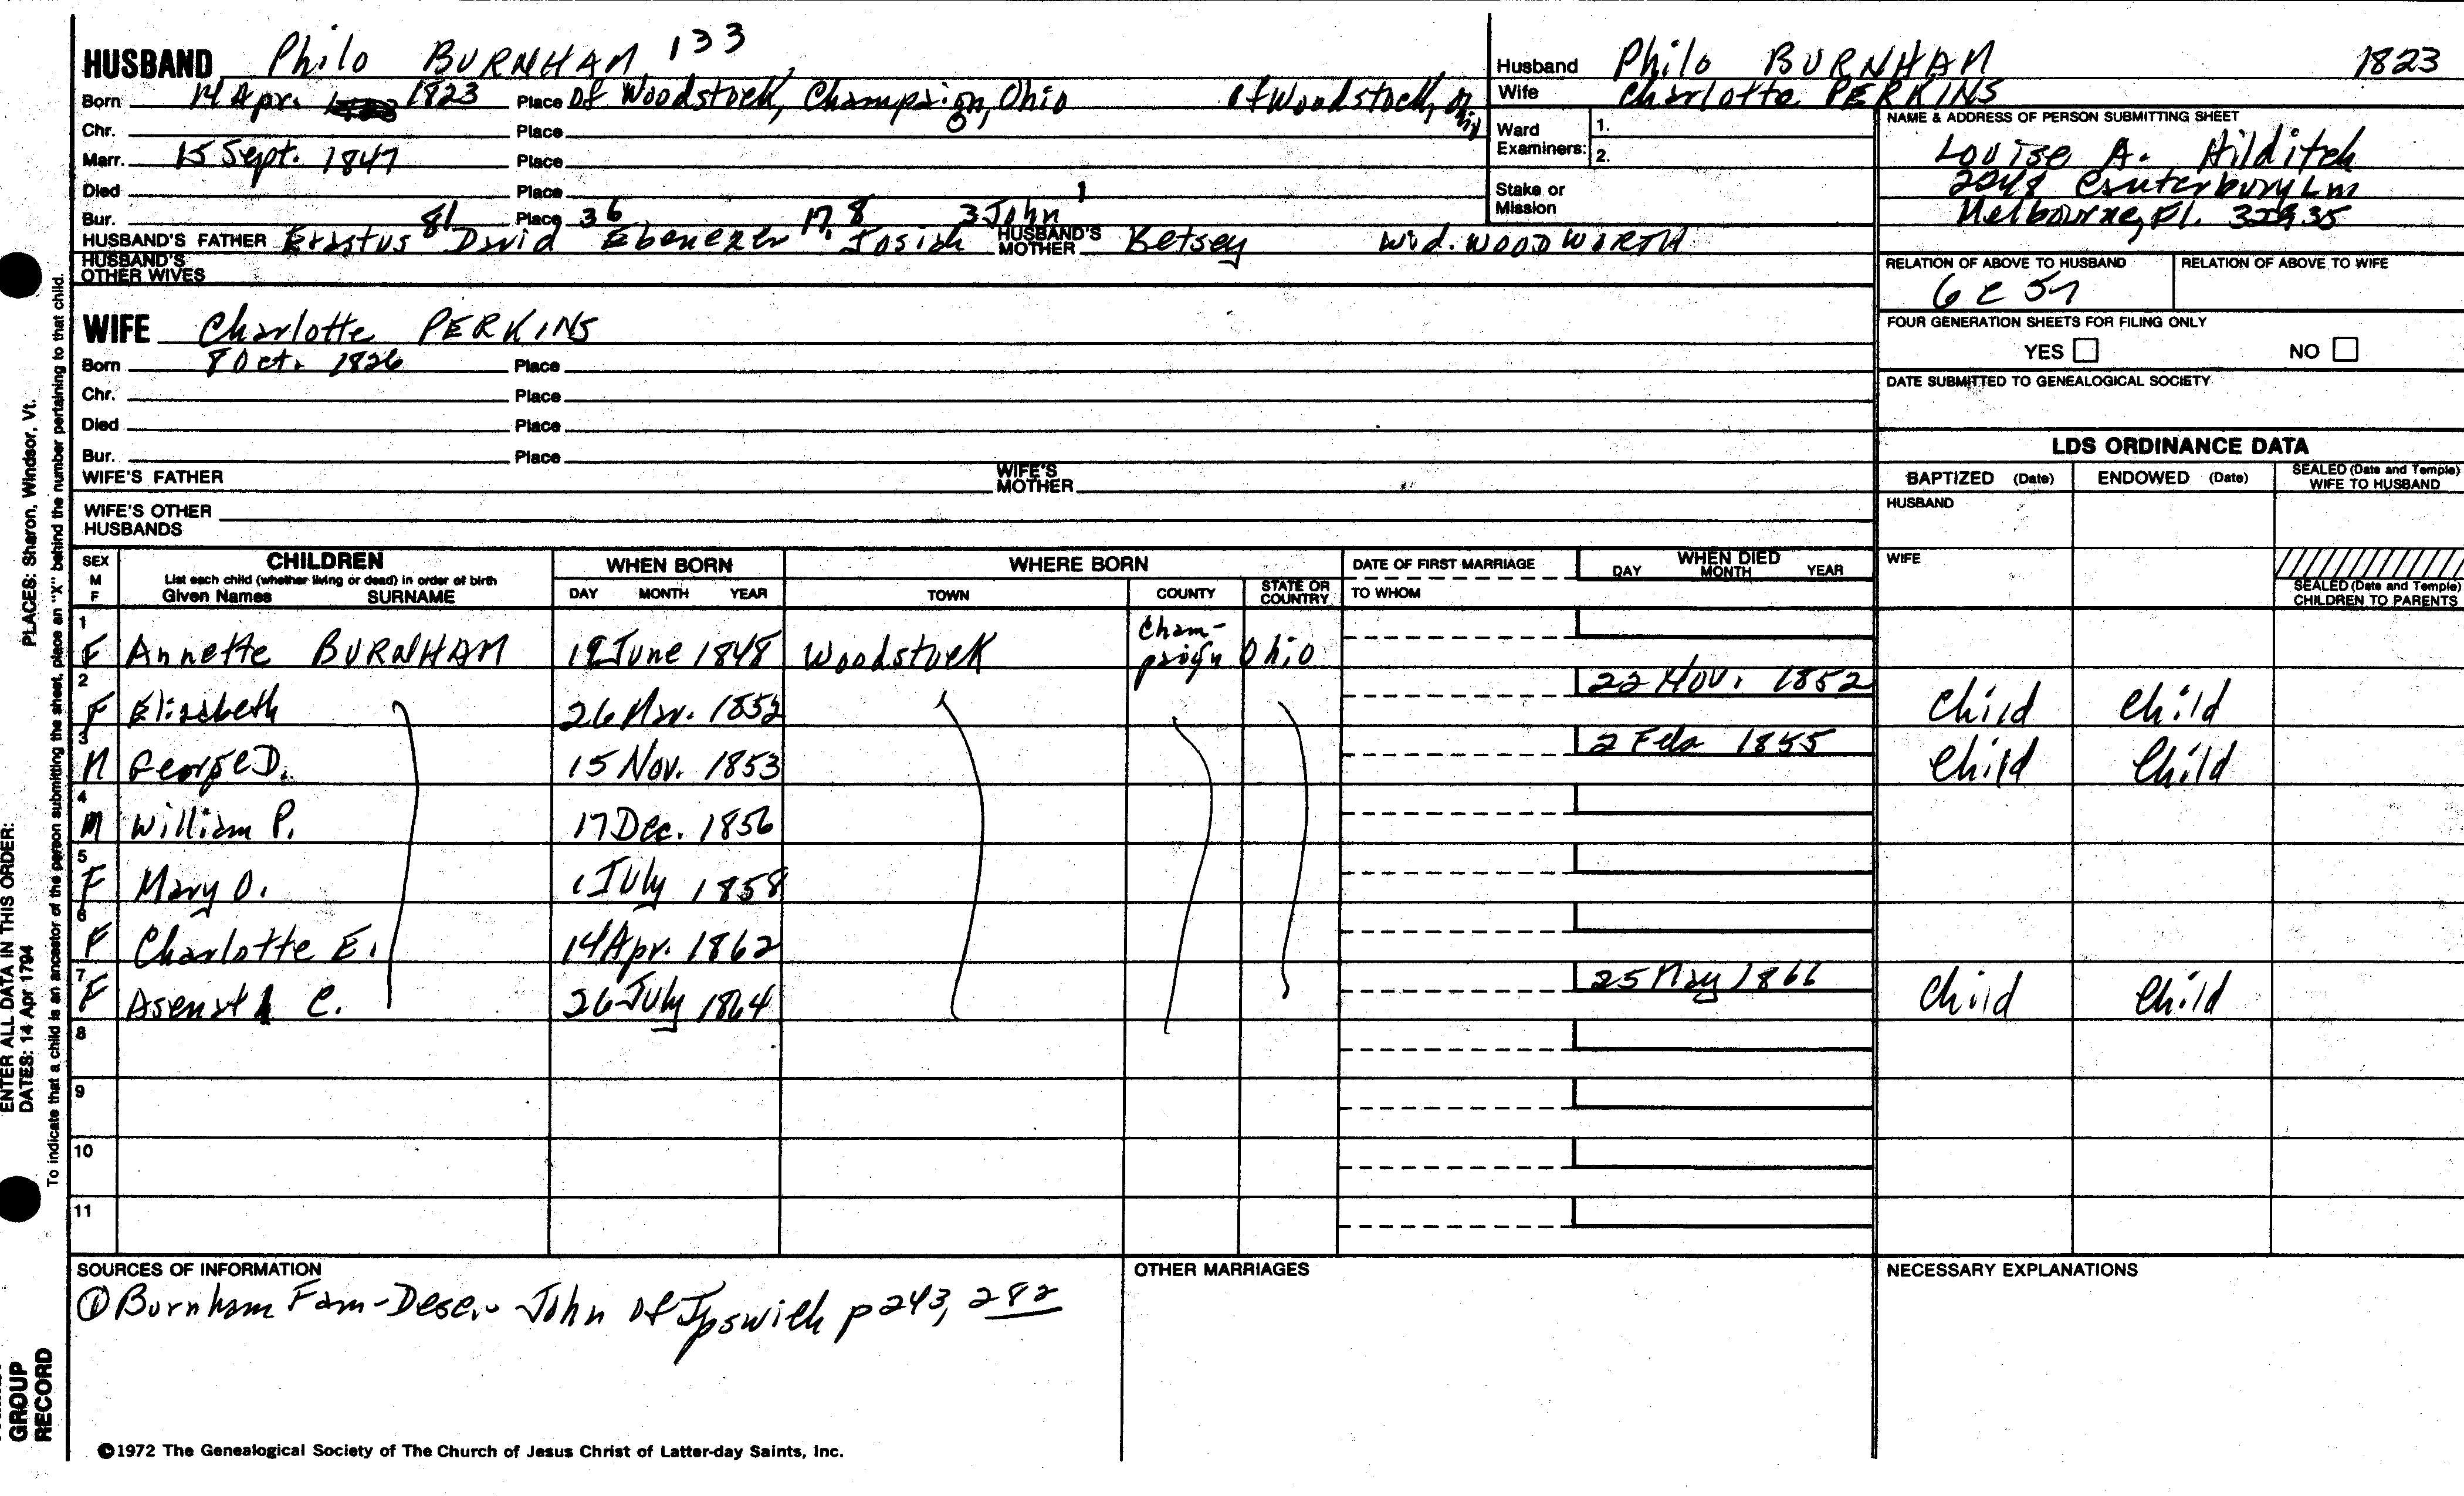 HUSBAND Philo BURNHAM 133
Born 14 Apr. 1823 Place Of Woodstock, Champaign, Ohio of Woodstock,
Chr. Place
Marr. 15 Sept. 1847 Place
Died Place
Bur. Place
81 36 17, 8 3 John 1
HUSBAND'S FATHER Erastus David Ebenezer Josiah HUSBAND'S MOTHER Betsey Wid. WOODWORTH
HUSBAND'S OTHER WIVES
WIFE Charlotte PERKINS
Born 8 Oct. 1826 Place
Chr. Place
Died Place
Bur. Place
WIFE'S FATHER WIFE'S MOTHER
WIFE'S OTHER HUSBANDS
Husband Philo BURNHAM 1823
Wife Charlotte PERKINS
Ward Examiners: 1.
2.
Stake or Mission
NAME & ADDRESS OF PERSON SUBMITTING SHEET
Louise A. Hilditch
2048 Canterbury Ln
Melbourne, Fl. 32935
RELATION OF ABOVE TO HUSBAND RELATION OF ABOVE TO WIFE
6 c 5r
FOUR GENERATION SHEETS FOR FILING ONLY
YES NO
DATE SUBMITTED TO GENEALOGICAL SOCIETY
LDS ORDINANCE DATA
BAPTIZED (Date) ENDOWED (Date) SEALED (Date and Temple) WIFE TO HUSBAND
HUSBAND
WIFE
SEALED (Date and Temple) CHILDREN TO PARENTS
SEX M F
CHILDREN
List each child (whether living or dead) in order of birth
Given Names SURNAME
WHEN BORN
DAY MONTH YEAR
WHERE BORN
TOWN COUNTY STATE OR COUNTRY
DATE OF FIRST MARRIAGE
TO WHOM
WHEN DIED
DAY MONTH YEAR
1 F Annette BURNHAM 19 June 1848 Woodstock Cham-paign Ohio
2 F Elizabeth 26 Mar. 1852 22 Nov. 1852 Child Child
3 M George D. 15 Nov. 1853 2 Feb 1855 Child Child
4 M William P. 17 Dec. 1856
5 F Mary O. 1 July 1858
6 F Charlotte E. 14 Apr. 1862
7 F Asenath C. 26 July 1864 25 May 1866 Child Child
8
9
10
11
SOURCES OF INFORMATION
① Burnham Fam-Desc. John of Ipswich p 243, 282
OTHER MARRIAGES
NECESSARY EXPLANATIONS
©1972 The Genealogical Society of The Church of Jesus Christ of Latter-day Saints, Inc.
GROUP RECORD
ENTER ALL DATA IN THIS ORDER:
DATES: 14 Apr 1794
PLACES: Sharon, Windsor, Vt.
To indicate that a child is an ancestor of the person submitting the sheet, place an "X" behind the number pertaining to that child.